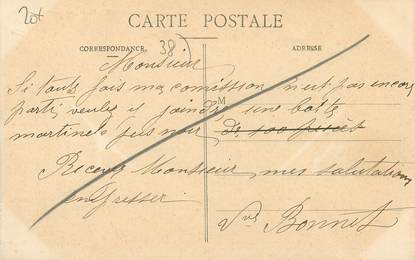 20f
CARTE POSTALE
38
CORRESPONDANCE
ADRESSE
Monsieur
Si tants fois ma comission n'est pas encor
parti veules y joindre une boîte
M
martinets fers noir de 100 pièces
Recevez Monsieur mes salutations
enpresser
Vve Bonnet